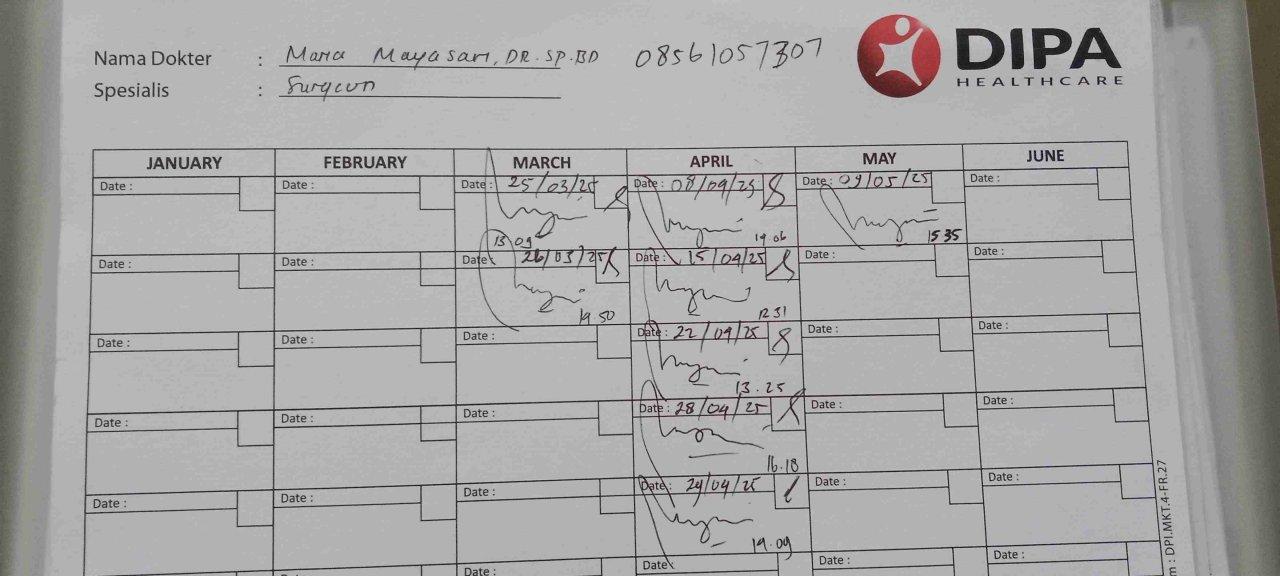 DIPA
HEALTHCARE
Nama Dokter : Mara Mayasari, DR. SP. BD 08561057307
Spesialis : Surgeon
JANUARY FEBRUARY MARCH APRIL MAY JUNE
Date : Date : Date : 25/03/25 Date : 08/04/25 Date : 09/05/25 Date :
13 09 19 06 15 35
Date : Date : Date : 26/03/25 Date : 15/04/25 Date : Date :
19.50 12 31
Date : Date : Date : Date : 22/04/25 Date : Date :
13.25
Date : Date : Date : Date : 28/04/25 Date : Date :
16.18
Date : Date : Date : Date : 29/04/25 Date : Date :
19.09
Date : Date : Date : Date : Date : Date :
m : DPI.MKT.4-FR.27